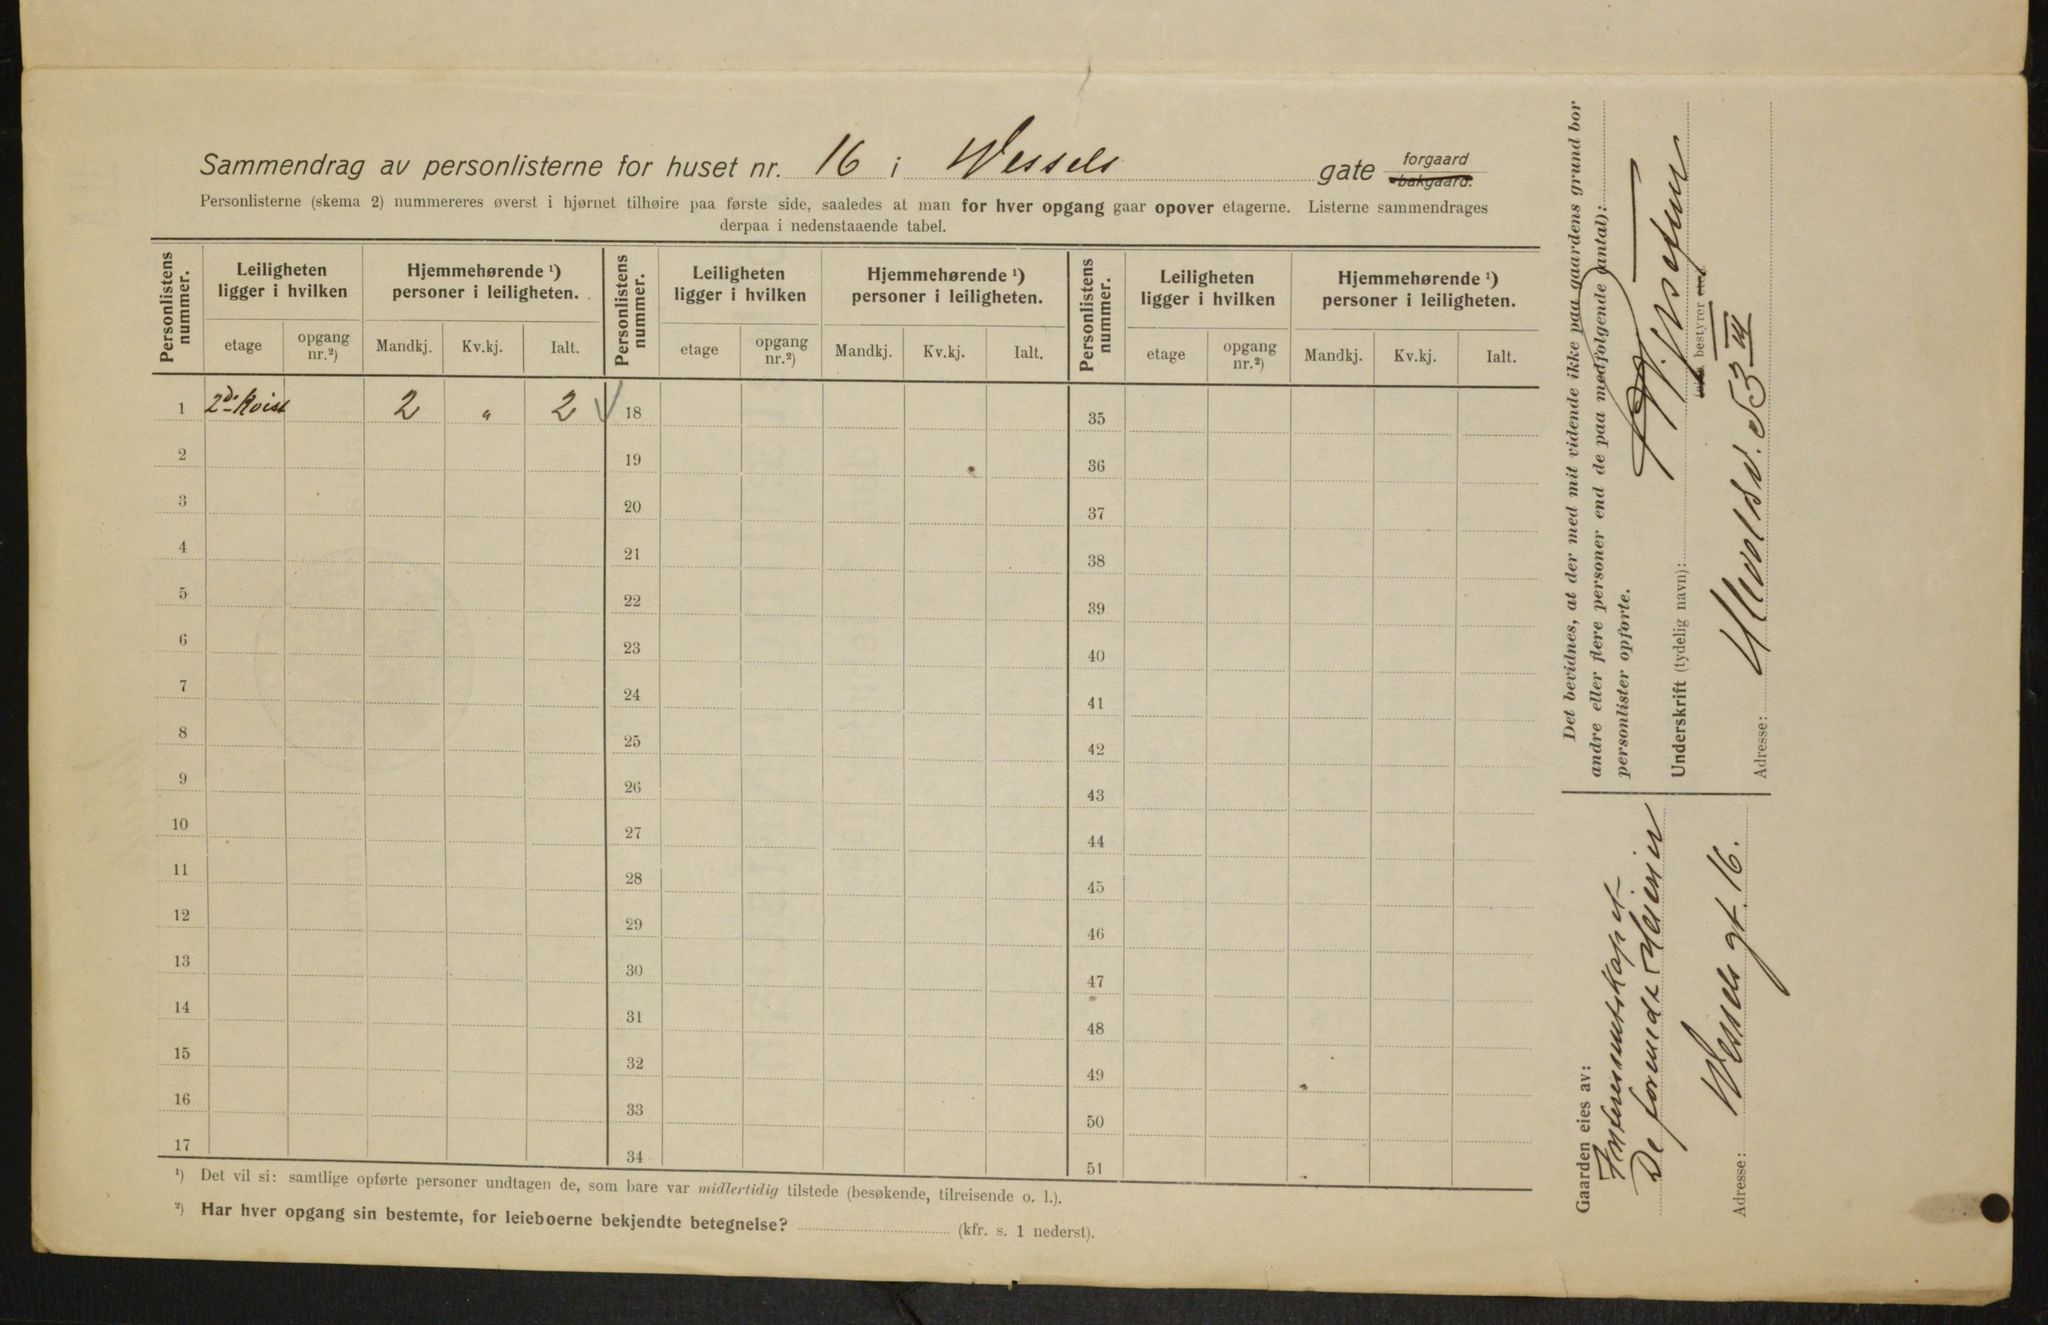 Sammendrag av personlisterne for huset nr. 16 i Wessels gate forgaard bakgaard.
Personlisterne (skema 2) nummereres øverst i hjørnet tilhøire paa første side, saaledes at man for hver opgang gaar opover etagerne. Listerne sammendrages
derpaa i nedenstaaende tabel.
Personlistens nummer. Leiligheten ligger i hvilken Hjemmehørende ¹) personer i leiligheten. Personlistens nummer. Leiligheten ligger i hvilken Hjemmehørende ¹) personer i leiligheten. Personlistens nummer. Leiligheten ligger i hvilken Hjemmehørende ¹) personer i leiligheten.
etage opgang nr.²) Mandkj. Kv.kj. Ialt. etage opgang nr.²) Mandkj. Kv.kj. Ialt. etage opgang nr.²) Mandkj. Kv.kj. Ialt.
1 2de Kvist 2 „ 2 18 35
2 19 36
3 20 37
4 21 38
5 22 39
6 23 40
7 24 41
8 25 42
9 26 43
10 27 44
11 28 45
12 29 46
13 30 47
14 31 48
15 32 49
16 33 50
17 34 51
¹) Det vil si: samtlige opførte personer undtagen de, som bare var midlertidig tilstede (besøkende, tilreisende o. l.).
²) Har hver opgang sin bestemte, for leieboerne bekjendte betegnelse? (kfr. s. 1 nederst).
Det bevidnes, at der med mit vidende ikke paa gaardens grund bor
andre eller flere personer end de paa medfølgende (antal):
personlister opførte.
Underskrift (tydelig navn):
bestyrer
Adresse: Ullevoldsv. 53 III
Gaarden eies av:
Interessentskapet
De forenede Meier
Adresse: Wessels gt. 16.